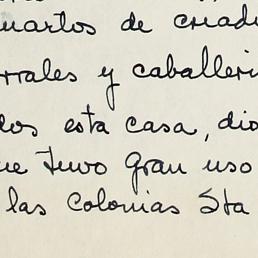 uartos de criad
rrales y caballeri
dos esta casa, dio
ue tuvo gran uso
las colonias Sta